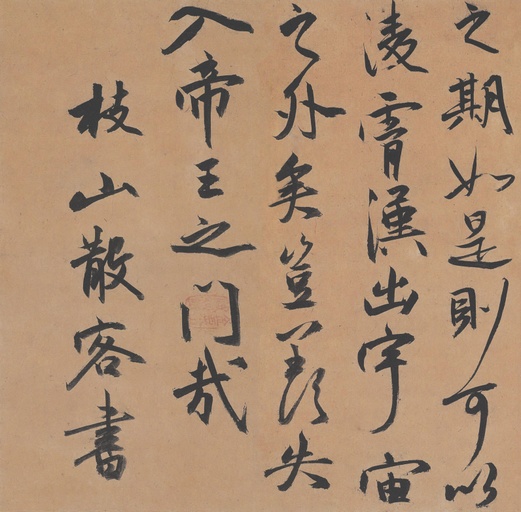 之期如是則可以
凌霄漢出宇宙
之外矣豈羨夫
入帝王之門哉
枝山散客書